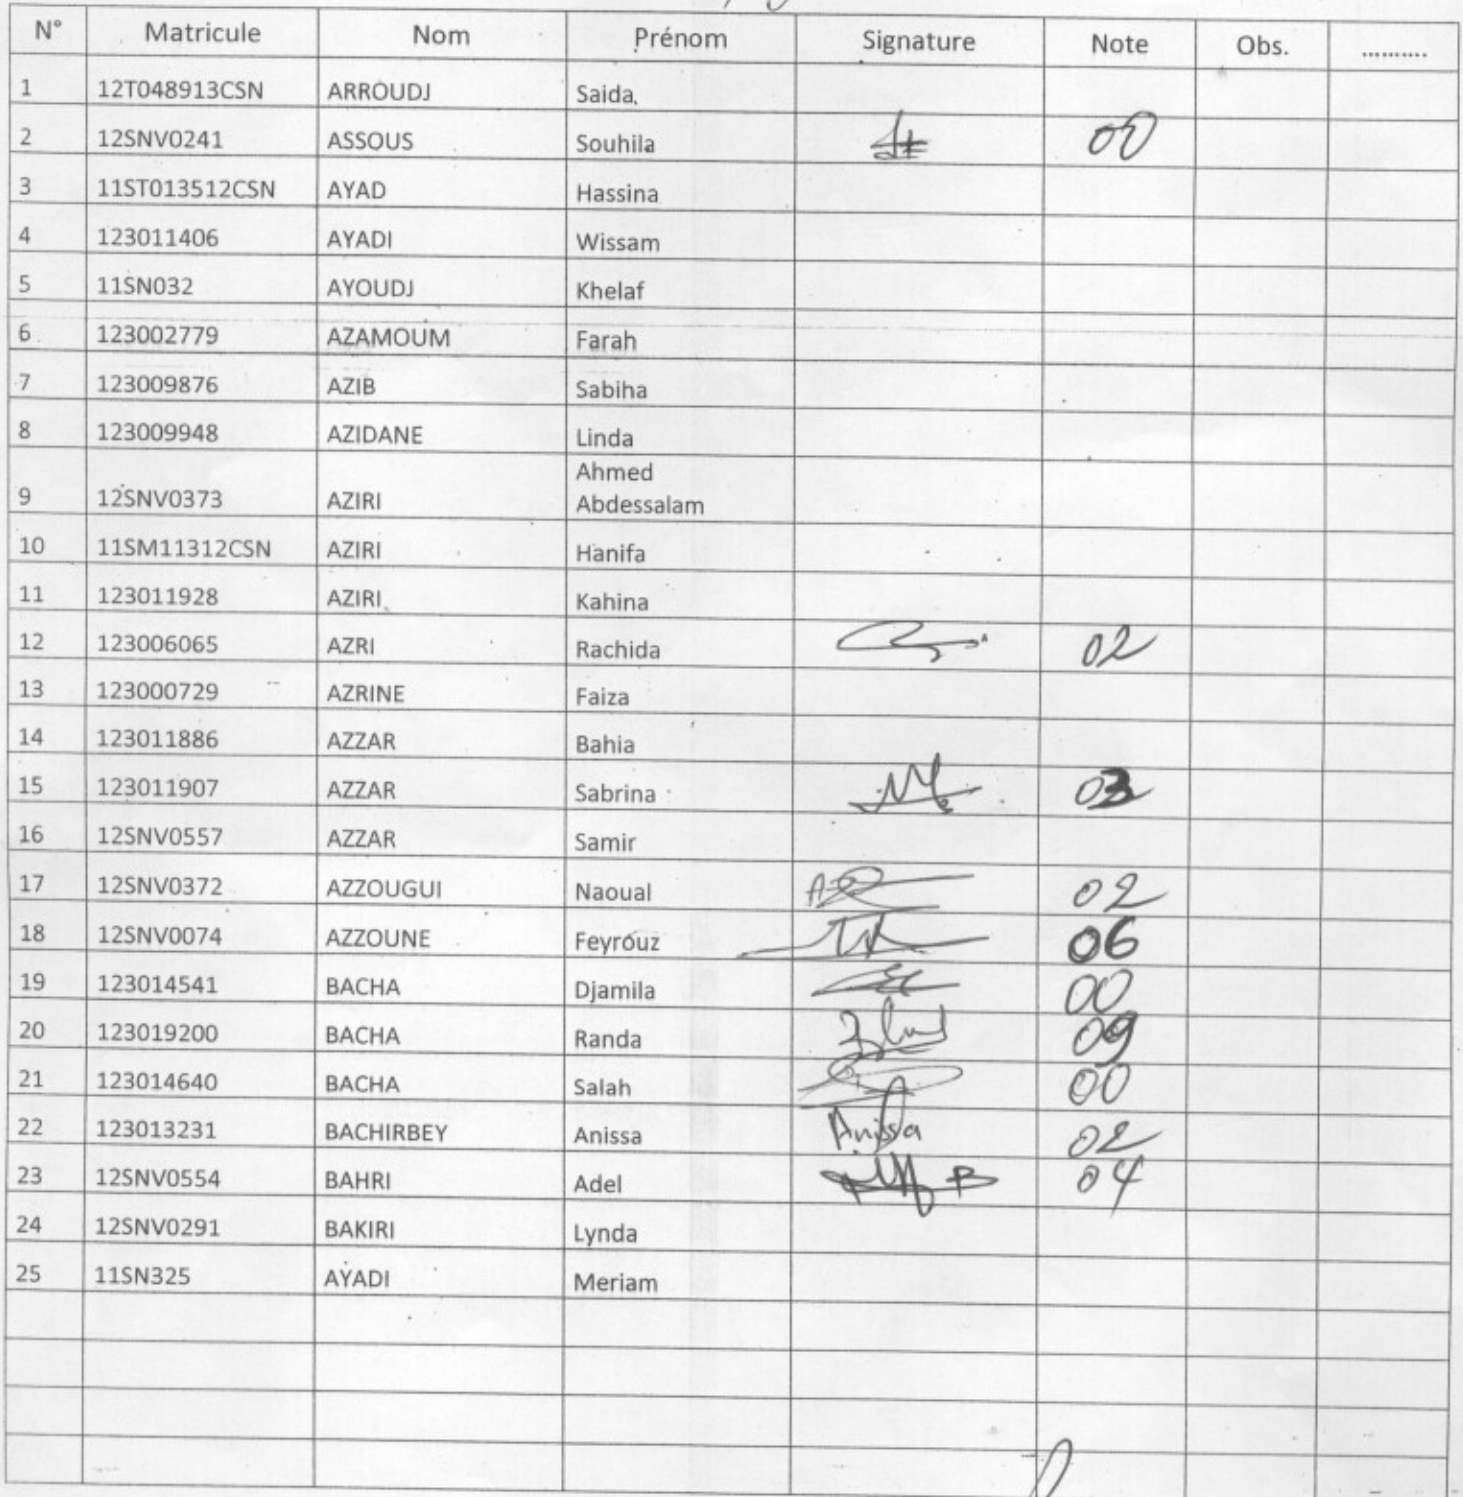 N° Matricule Nom Prénom Signature Note Obs. ..........
1 12T048913CSN ARROUDJ Saida
2 12SNV0241 ASSOUS Souhila 00
3 11ST013512CSN AYAD Hassina
4 123011406 AYADI Wissam
5 11SN032 AYOUDJ Khelaf
6 123002779 AZAMOUM Farah
7 123009876 AZIB Sabiha
8 123009948 AZIDANE Linda
Ahmed
9 12SNV0373 AZIRI Abdessalam
10 11SM11312CSN AZIRI Hanifa
11 123011928 AZIRI Kahina
12 123006065 AZRI Rachida 02
13 123000729 AZRINE Faiza
14 123011886 AZZAR Bahia
15 123011907 AZZAR Sabrina 03
16 12SNV0557 AZZAR Samir
17 12SNV0372 AZZOUGUI Naoual 02
18 12SNV0074 AZZOUNE Feyrouz 06
19 123014541 BACHA Djamila 00
20 123019200 BACHA Randa 09
21 123014640 BACHA Salah 00
22 123013231 BACHIRBEY Anissa Anissa 02
23 12SNV0554 BAHRI Adel 04
24 12SNV0291 BAKIRI Lynda
25 11SN325 AYADI Meriam